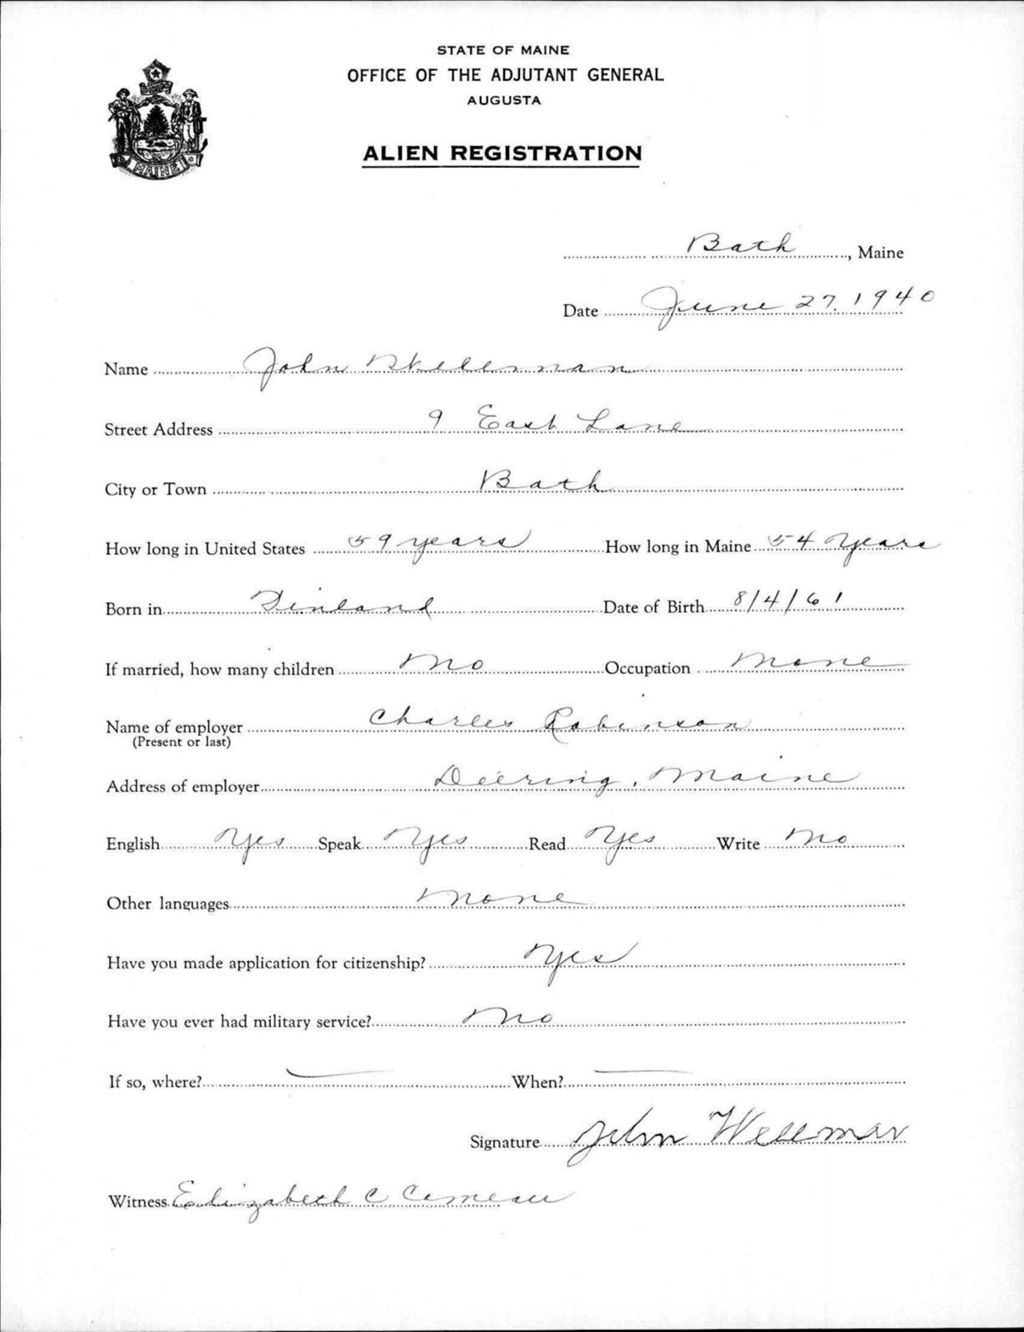 STATE OF MAINE
OFFICE OF THE ADJUTANT GENERAL
AUGUSTA
ALIEN REGISTRATION
MAINE
Bath, Maine
Date June 27, 1940
Name John Wellerman
Street Address 9 East Lane
City or Town Bath
How long in United States 59 years How long in Maine 54 years
Born in Finland Date of Birth 8/4/61
If married, how many children No Occupation None
Name of employer Charles Robinson
(Present or last)
Address of employer Deering, Maine
English Yes Speak Yes Read Yes Write No
Other languages None
Have you made application for citizenship? Yes
Have you ever had military service? No
If so, where? — When? —
Signature John
Witness Elizabeth C Comeau